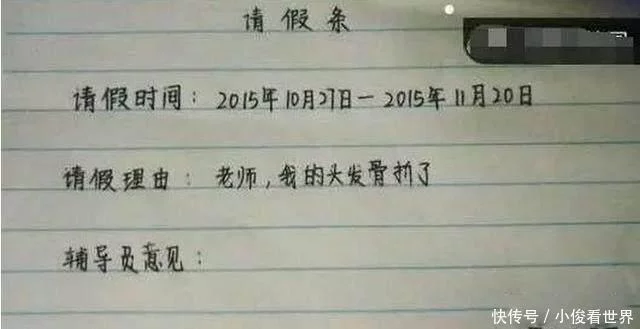 请假条
请假时间：2015年10月27日—2015年11月20日
请假理由：老师，我的头发骨折了
辅导员意见：
快传号／小俊看世界